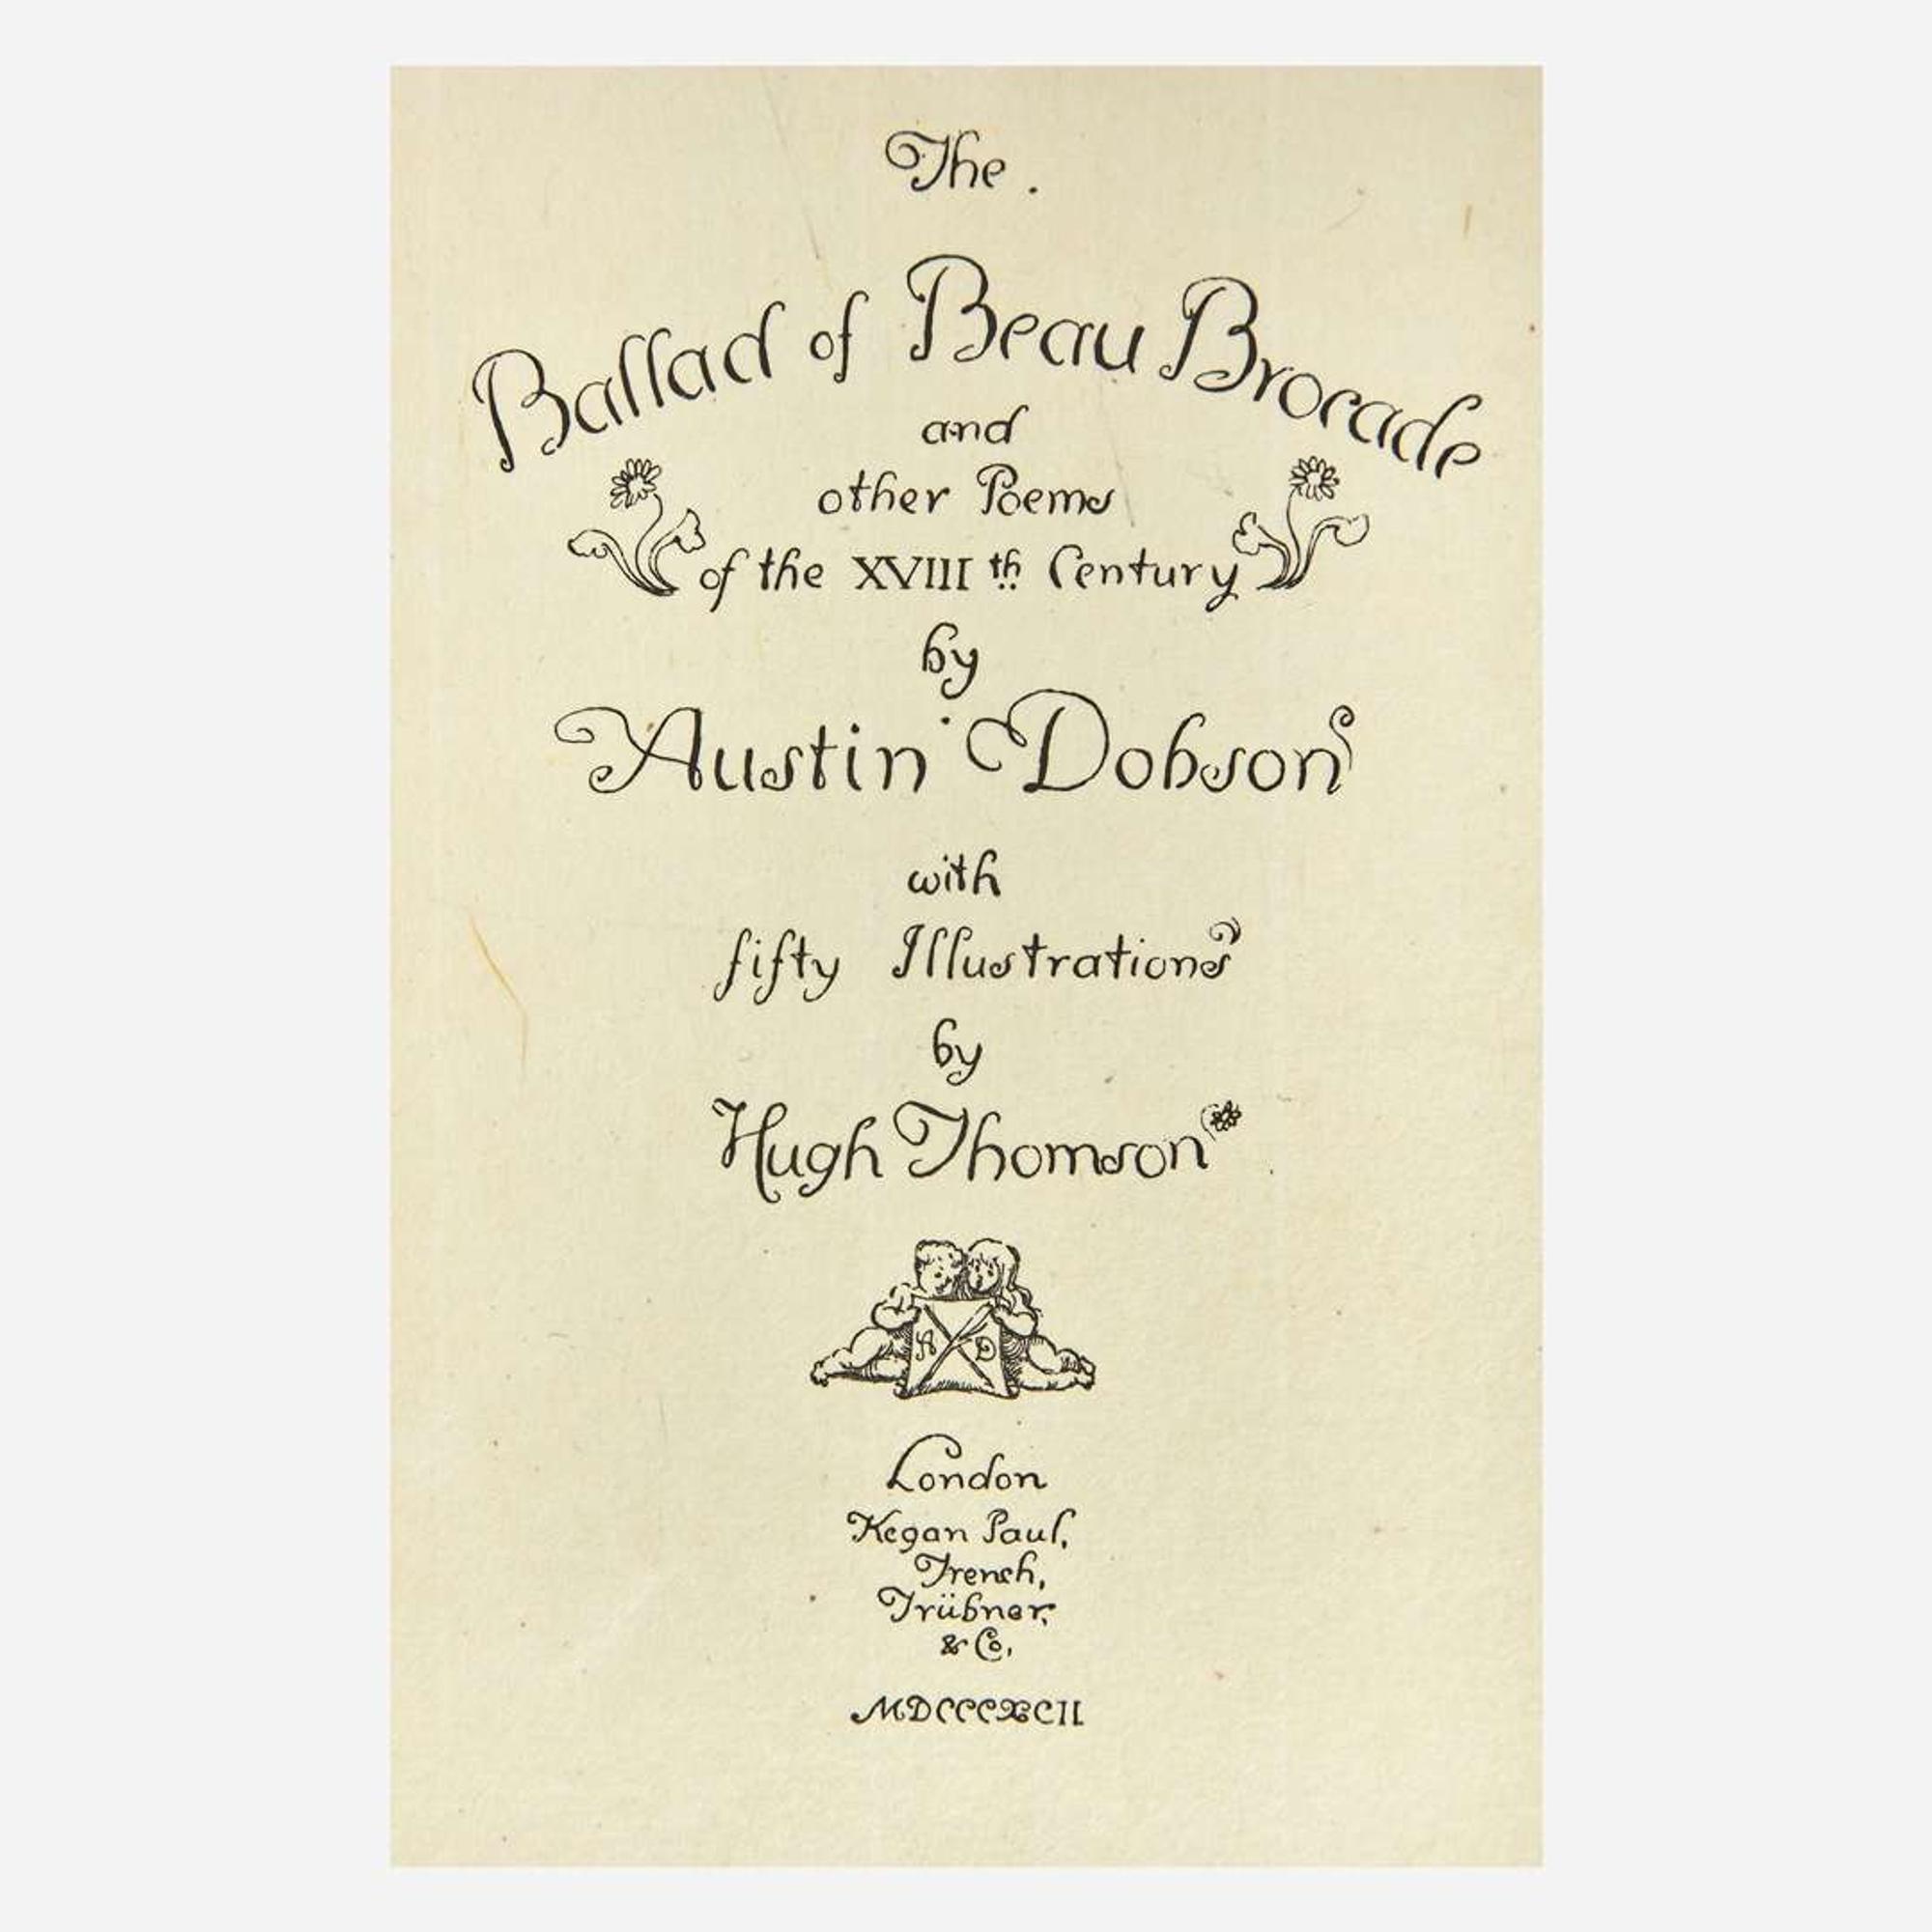 The .
Ballad of Beau Brocade
and
other Poems
of the XVIII th Century
by
Austin Dobson
with
fifty Illustrations
by
Hugh Thomson
A D
London
Kegan Paul,
Trench,
Trübner,
& Co,
MDCCCXCII